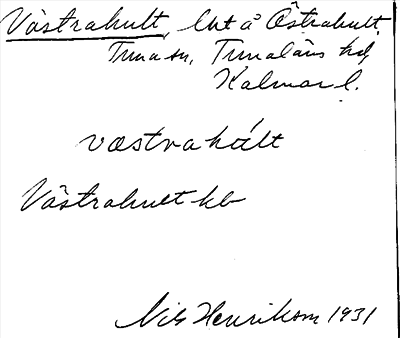 Västrahult, lht å Östrahult,
Tuna sn, Tunaläns hd,
Kalmar l.
västrahúlt
Västrahult kb
Nils Henrikson 1931